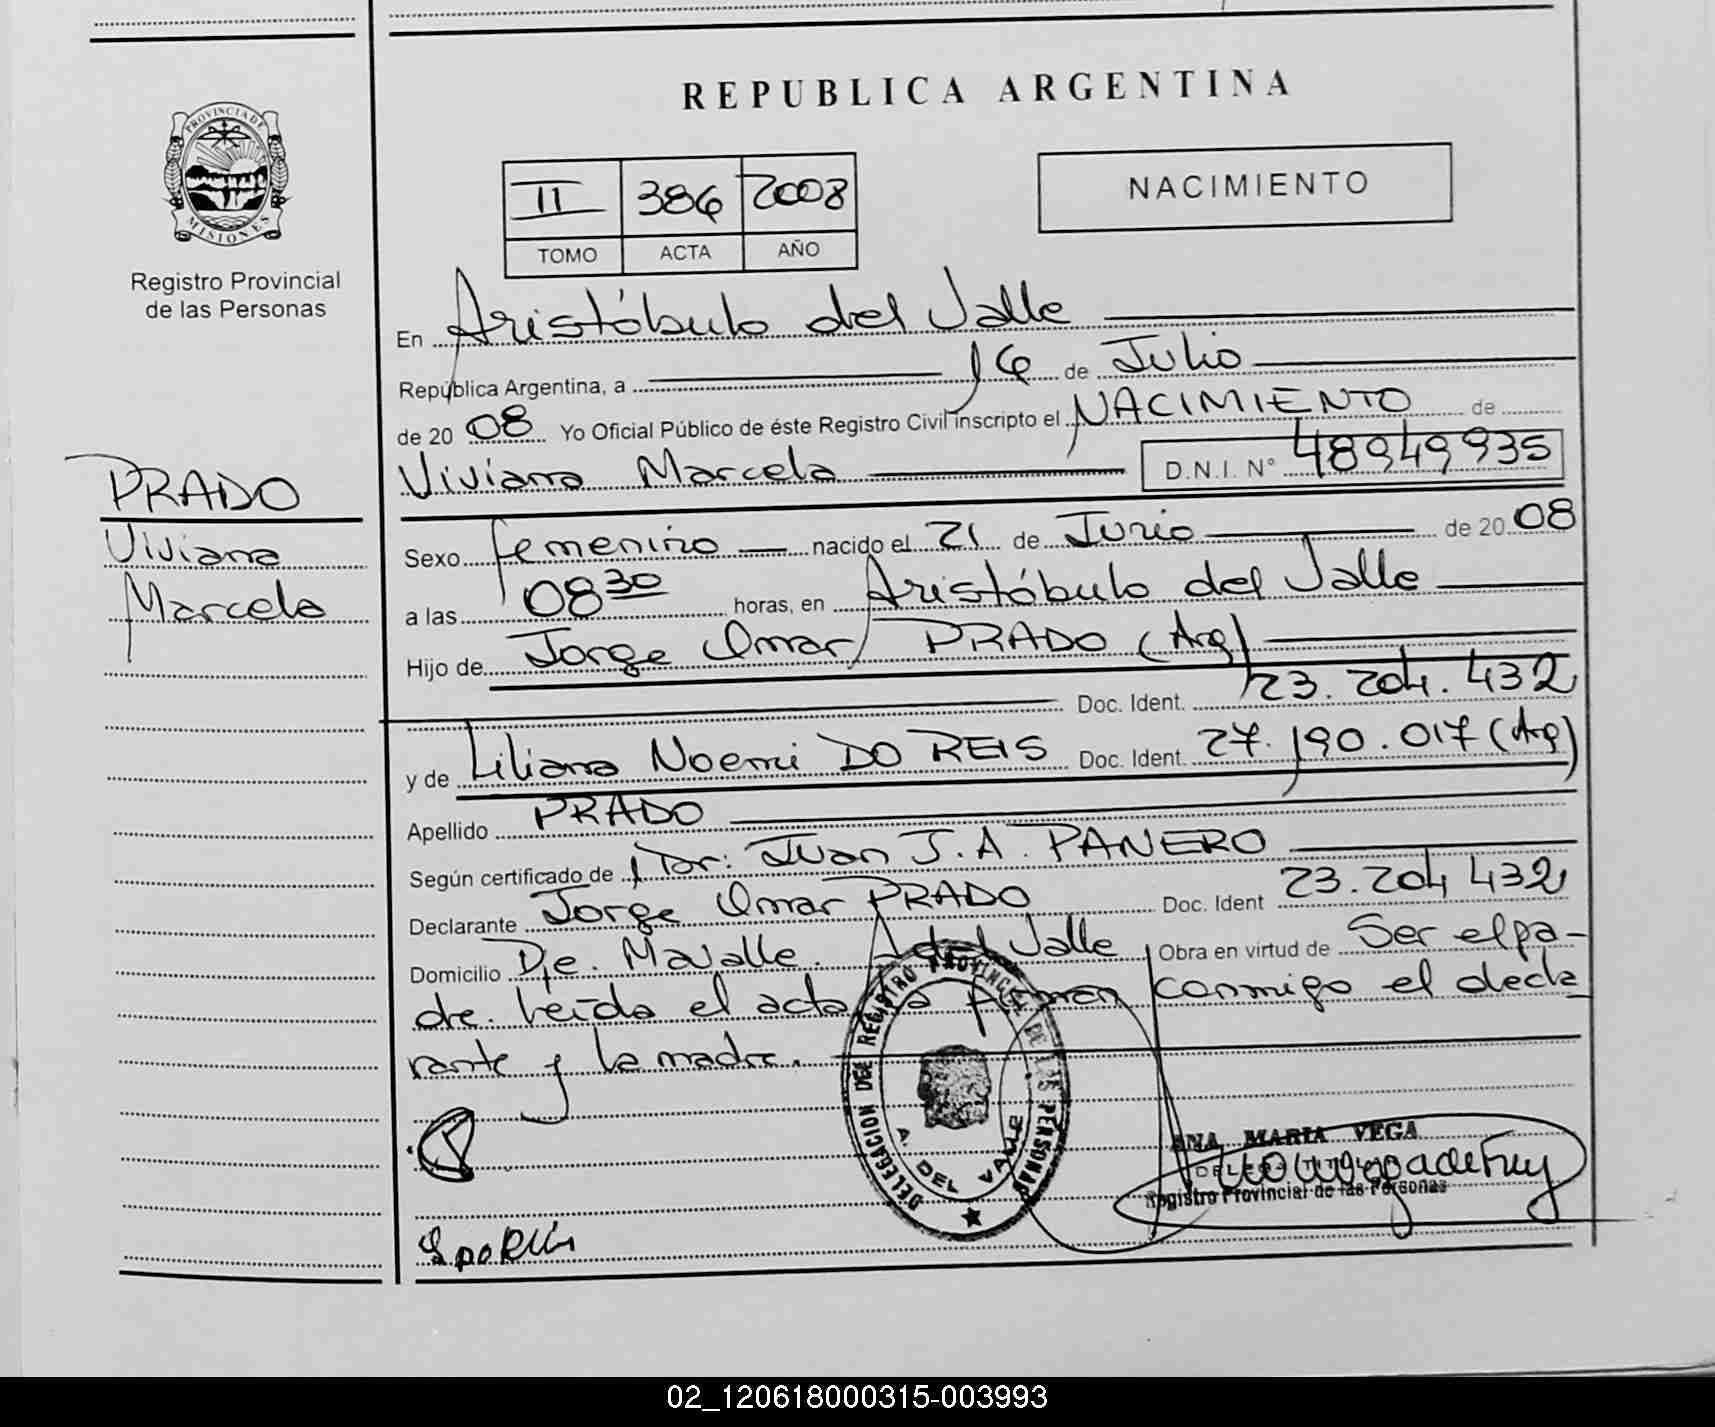 REPUBLICA ARGENTINA
PROVINCIA DE
MISIONES
Registro Provincial
de las Personas
II 386 2008
TOMO ACTA AÑO
NACIMIENTO
En Aristóbulo del Valle
República Argentina, a 16 de Julio
de 20 08 Yo Oficial Público de éste Registro Civil inscripto el NACIMIENTO de
Viviana Marcela D.N.I. N° 48949935
PRADO
Viviana
Marcela
Sexo femenino nacido el 21 de Junio de 20 08
a las 08 30 horas, en Aristóbulo del Valle
Hijo de Jorge Omar PRADO (Arg)
Doc. Ident. 23.204.432
y de Liliana Noemi DO REIS Doc. Ident. 27.190.017 (Arg)
Apellido PRADO
Según certificado de Dr: Juan J.A. PANERO
Declarante Jorge Omar PRADO Doc. Ident 23.204 432
Domicilio Pje. Mavalle. A del Valle Obra en virtud de Ser el pa-
dre. Leída el acta la firman conmigo el decla
rante y la madre.
DELEGACION DEL REGISTRO PROVINCIAL DE LAS PERSONAS
A. DEL VALLE
ANA MARIA VEGA
Registro Provincial de las Personas
02_120618000315-003993